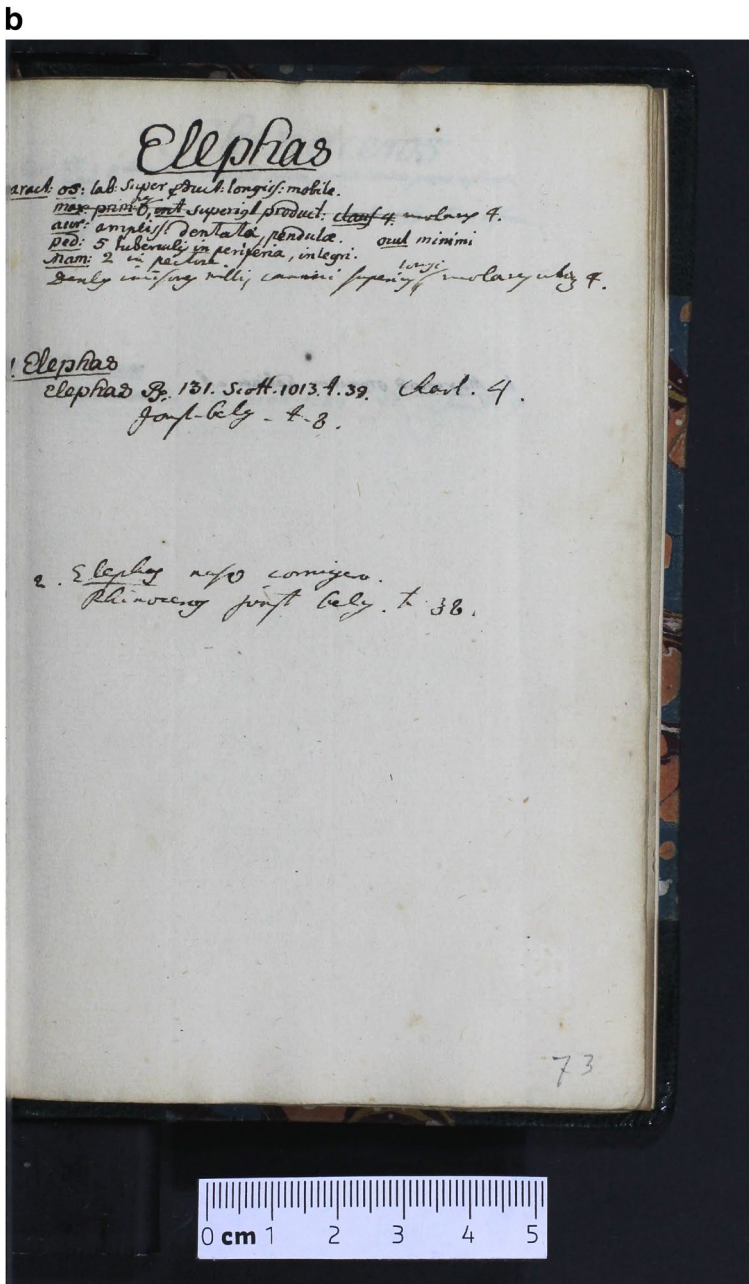 b
Elephas
aract: os: lab: super product: longiss: mobile.
max: prim superior product: molares 4.
aur: ampliss: dentatae, pendulae. ocul minimi
ped: 5 tuberculis in periferia, integri.
Mam: 2 in pectore
Dentes nullis, canini longi molares 4.
1. Elephas
Elephas 131. Scott. 1013. t. 39. 4.
Jonst. belg. t. 8.
2. Elephas naso cornigero.
Rhinoceros Jonst belg. t. 38.
73
0 cm 1 2 3 4 5